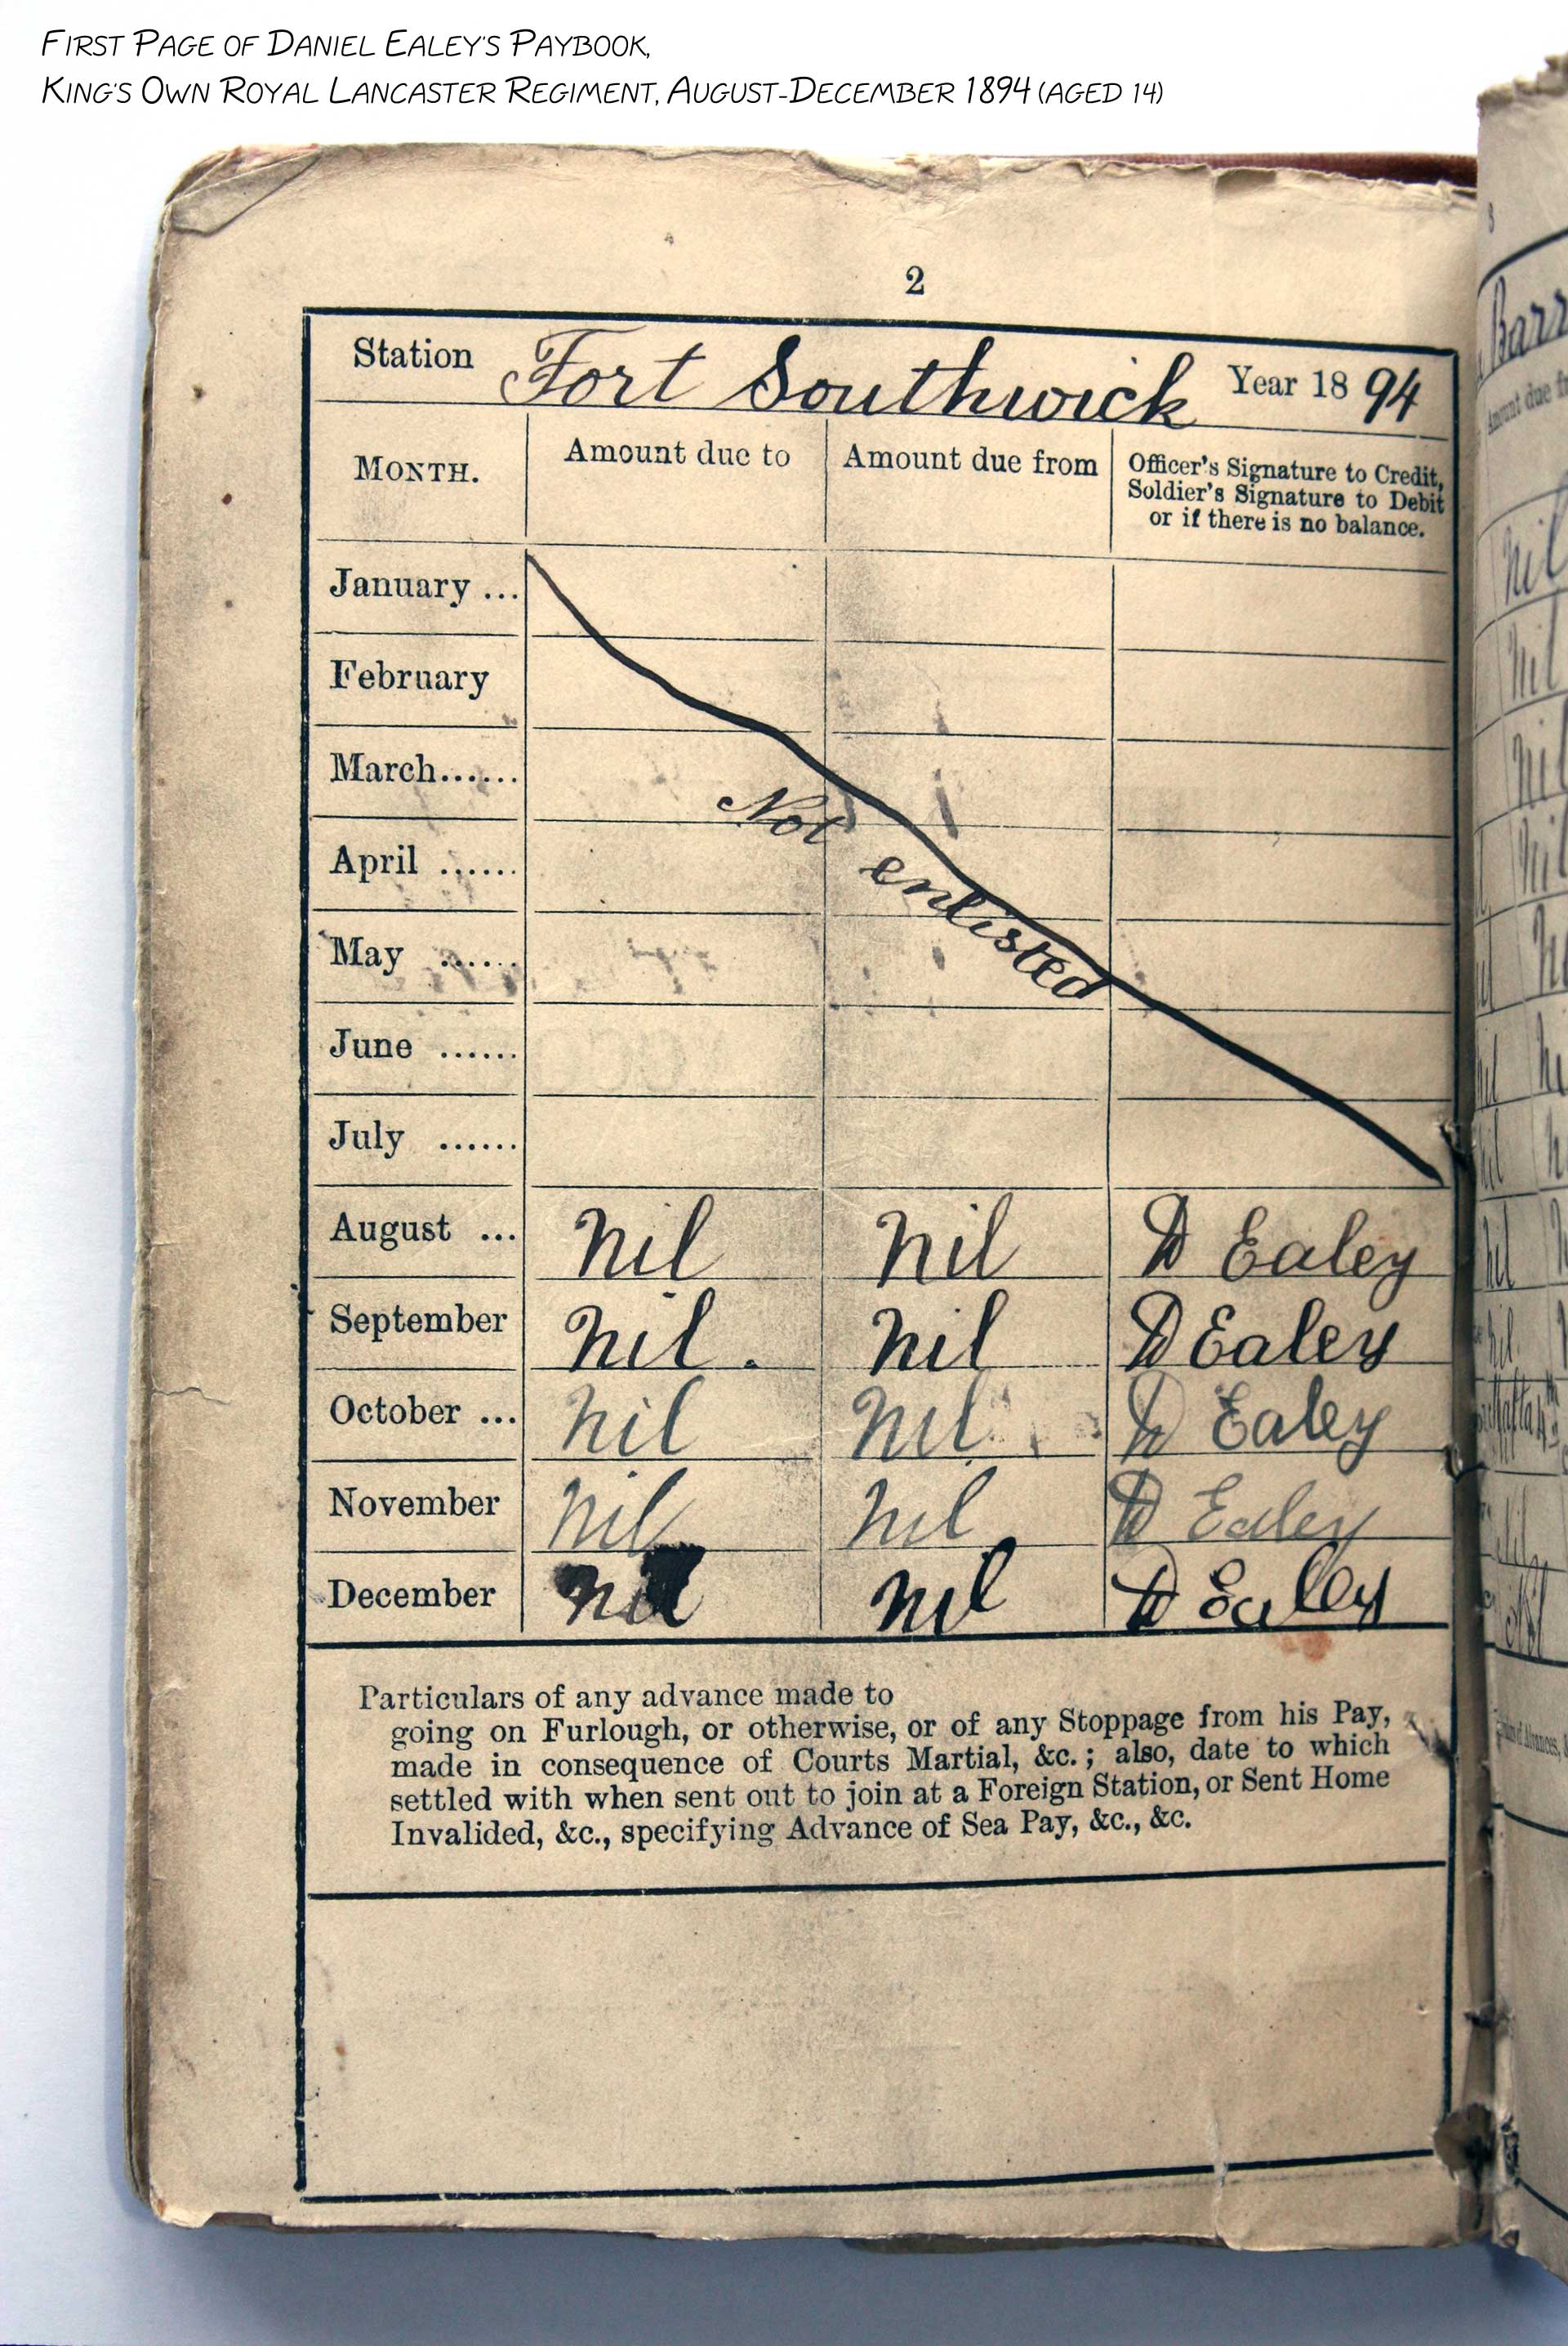 FIRST PAGE OF DANIEL EALEY'S PAYBOOK,
KING'S OWN ROYAL LANCASTER REGIMENT, AUGUST-DECEMBER 1894 (AGED 14)
2
Station Fort Southwick Year 1894
MONTH. Amount due to Amount due from Officer's Signature to Credit,
Soldier's Signature to Debit
or if there is no balance.
January ...
February
March......
April ......
May ......
June ......
July ......
Not enlisted
August ... nil nil D Ealey
September nil. nil D Ealey
October ... nil nil D Ealey
November nil nil D Ealey
December nil nil D Ealey
Particulars of any advance made to
going on Furlough, or otherwise, or of any Stoppage from his Pay,
made in consequence of Courts Martial, &c.; also, date to which
settled with when sent out to join at a Foreign Station, or Sent Home
Invalided, &c., specifying Advance of Sea Pay, &c., &c.